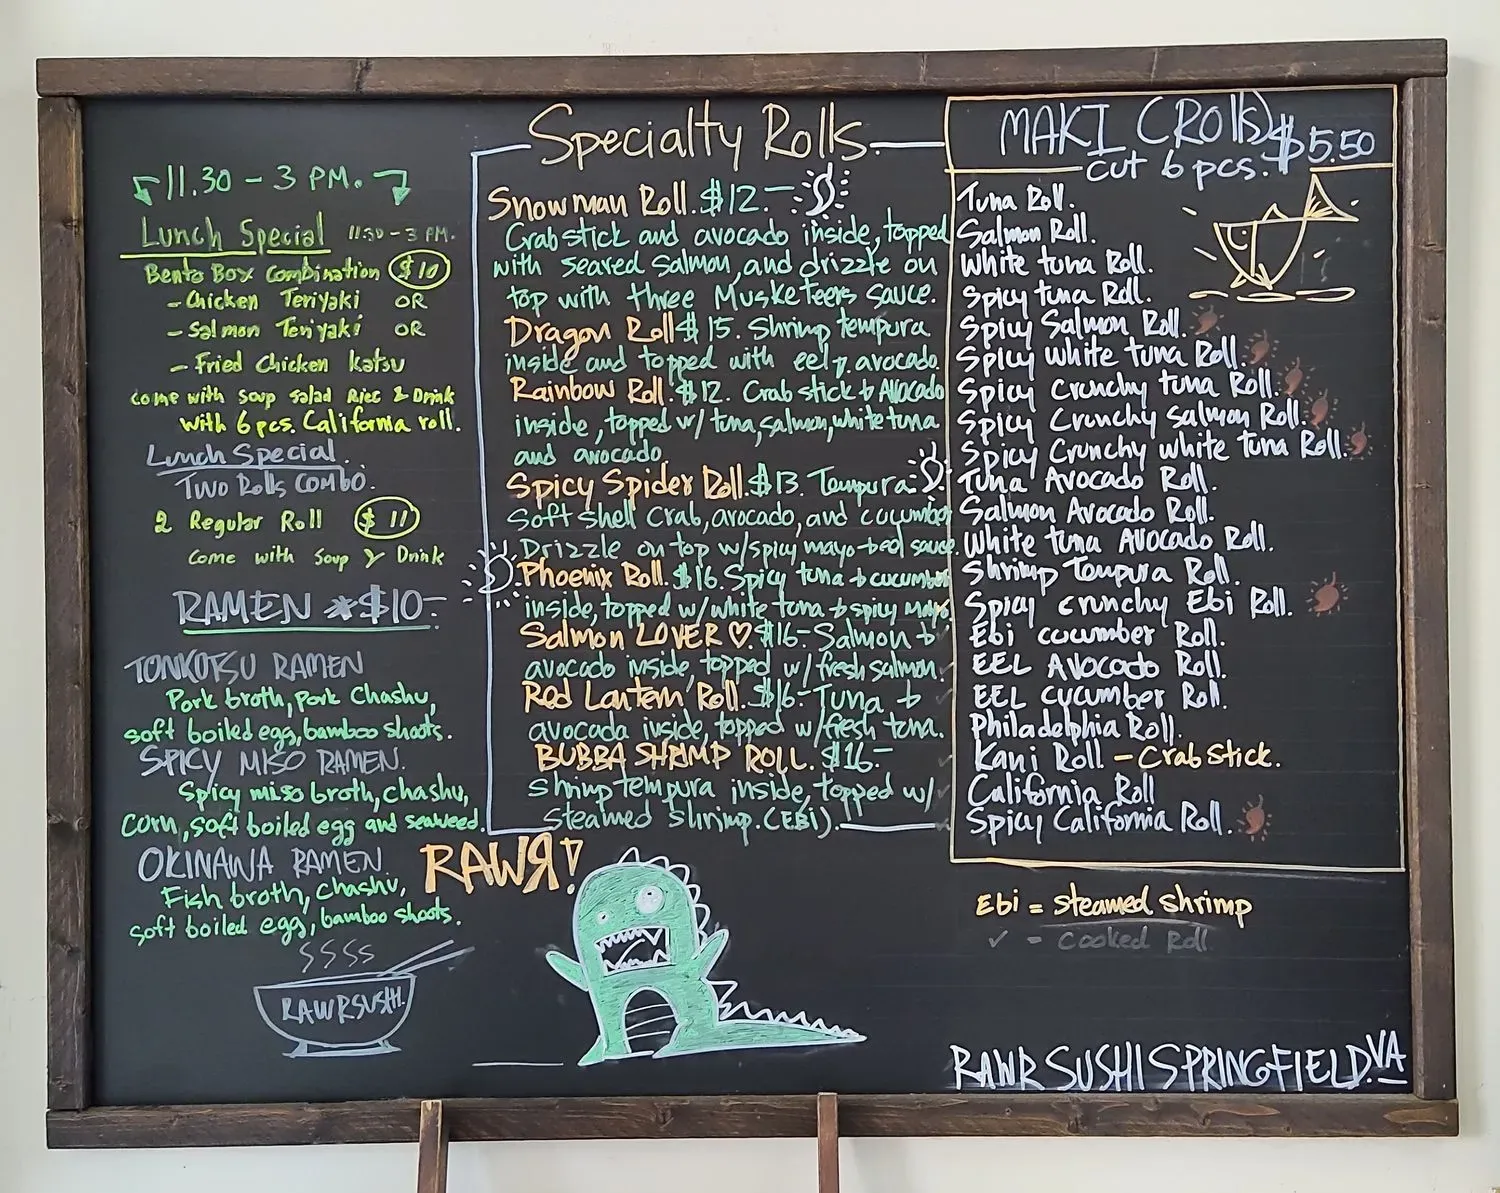 11.30 - 3 PM.
Lunch Special 11:30 - 3 PM.
Bento Box Combination $10
- Chicken Teriyaki OR
- Salmon Teriyaki OR
- Fried Chicken Katsu
come with Soup Salad Rice & Drink
with 6 pcs. California roll.
Lunch Special.
Two Rolls Combo.
2 Regular Roll $11
come with Soup & Drink
RAMEN *$10-
TONKOTSU RAMEN
Pork broth, pork Chashu,
soft boiled egg, bamboo shoots.
SPICY MISO RAMEN.
Spicy miso broth, chashu,
corn, soft boiled egg and seaweed.
OKINAWA RAMEN.
Fish broth, chashu,
soft boiled egg, bamboo shoots.
RAWRSUSHI.
Specialty Rolls
Snowman Roll. $12.-
Crab stick and avocado inside, topped
with seared salmon, and drizzle on
top with three Musketeers sauce.
Dragon Roll $15. Shrimp tempura
inside and topped with eel & avocado.
Rainbow Roll. $12. Crab stick & Avocado
inside, topped w/ tuna, salmon, white tuna
and avocado
Spicy Spider Roll. $13. Tempura
Soft shell crab, avocado, and cucumber
Drizzle on top w/ spicy mayo & eel sauce.
Phoenix Roll. $16. Spicy tuna & cucumber
inside, topped w/ white tuna & spicy mayo.
Salmon LOVER ♡ $16- Salmon &
avocado inside, topped w/ fresh salmon.
Red Lantern Roll. $16- Tuna &
avocado inside, topped w/ fresh tuna.
BUBBA SHRIMP ROLL. $16-
shrimp tempura inside, topped w/
steamed shrimp. (EBI).
RAWR!
MAKI (Rolls) $5.50
cut 6 pcs.
Tuna Roll.
Salmon Roll.
White tuna Roll.
Spicy tuna Roll.
Spicy Salmon Roll.
Spicy White tuna Roll.
Spicy Crunchy tuna Roll.
Spicy Crunchy salmon Roll.
Spicy Crunchy white tuna Roll.
Tuna Avocado Roll.
Salmon Avocado Roll.
White tuna Avocado Roll.
Shrimp Tempura Roll.
Spicy crunchy Ebi Roll.
Ebi cucumber Roll.
EEL Avocado Roll.
EEL cucumber Roll.
Philadelphia Roll.
Kani Roll - Crab Stick.
California Roll
Spicy California Roll.
Ebi = steamed shrimp
✓ = Cooked Roll
RAWR SUSHI SPRINGFIELD. VA